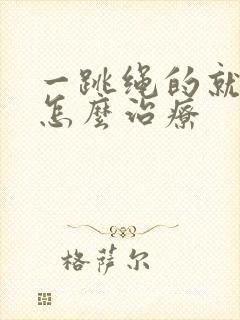 一跳绳的就
怎麼治療
格萨尔